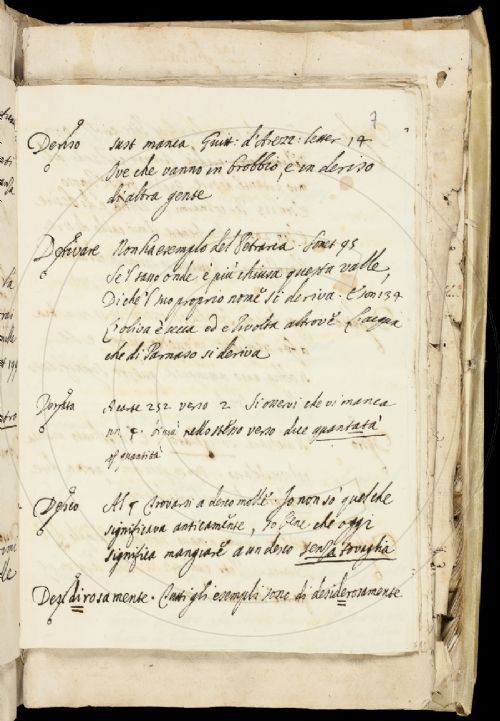 7
Deriso sust manca, Guitt: d'Arezz: letter 14
Ove che vanno in brobbio, e in deriso
di altra gente
Derivare Non ha esemplo del Petrarca. Sonet 95
Se'l sasso onde è più chiusa questa valle,
Di che'l suo proprio nome si deriva. E son 134
L'oliva è secca ed è rivolta altrove L'acqua
che di Parnaso si deriva
A carte 252 verso 2. Si osservi che vi manca
un nello stesso verso due quantatà
quantità
Desco Al trovarsi a desco molle. Io non sò quel che
significava anticamente, so bene che oggi
significa mangiare a un desco senza tovaglia
Desidirosamente. Tutti gli esempli sono di desiderosamente